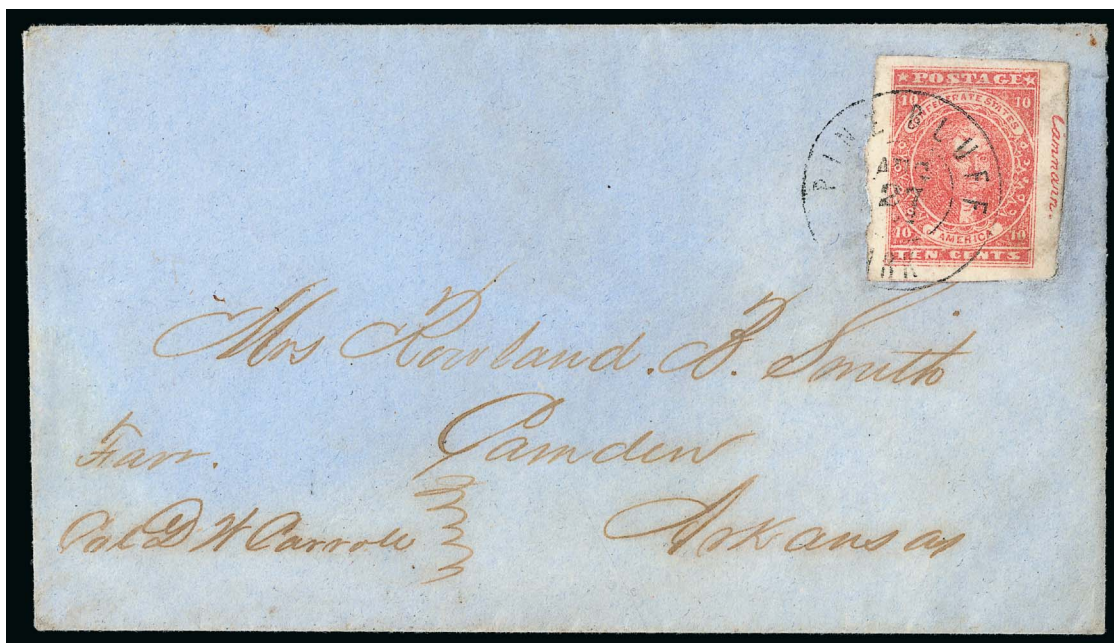 ★ POSTAGE ★
10 10
CONFEDERATE STATES
AMERICA
10 10
TEN CENTS
Lanmann.
PINE BLUFF
ARK
Mrs Rowland. B. Smith
Camden
Arkansas
Favr.
Col D W Carroll